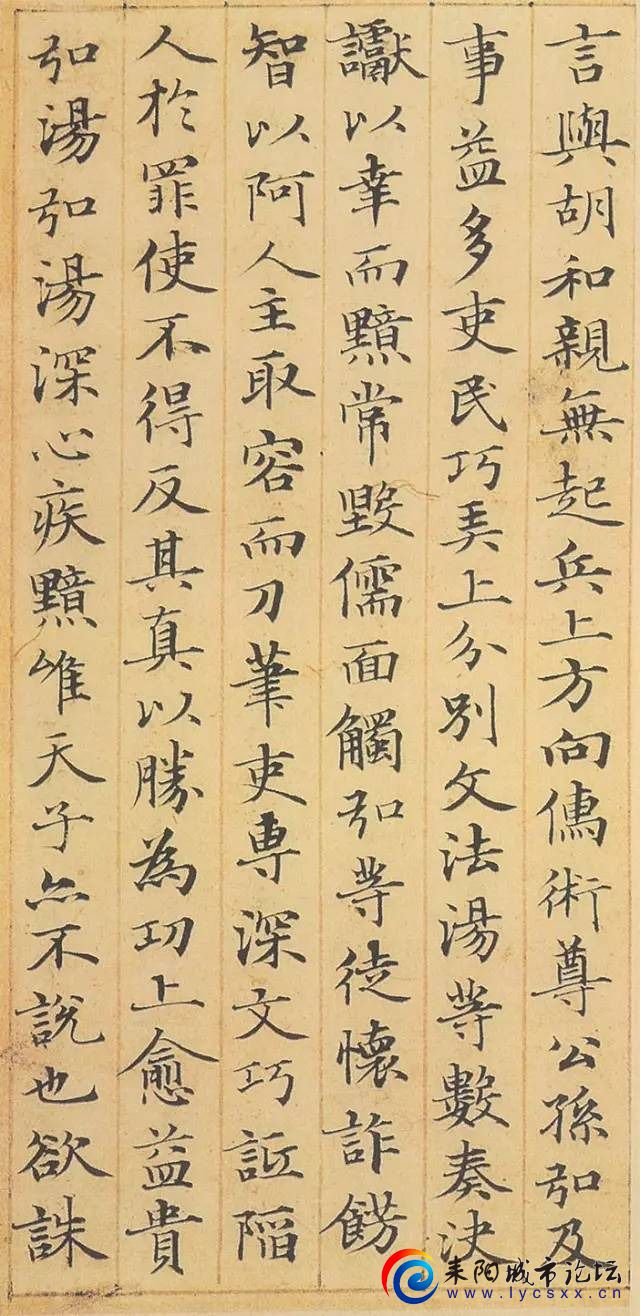 言與胡和親無起兵上方向儒術尊公孫弘及
事益多吏民巧弄上分別文法湯等數奏決
讞以幸而黯常毀儒面觸弘等徒懷詐飾
智以阿人主取容而刀筆吏專深文巧詆陷
人於罪使不得反其真以勝為功上愈益貴
弘湯弘湯深心疾黯唯天子亦不說也欲誅
耒阳城市论坛
www.lycsxx.cn